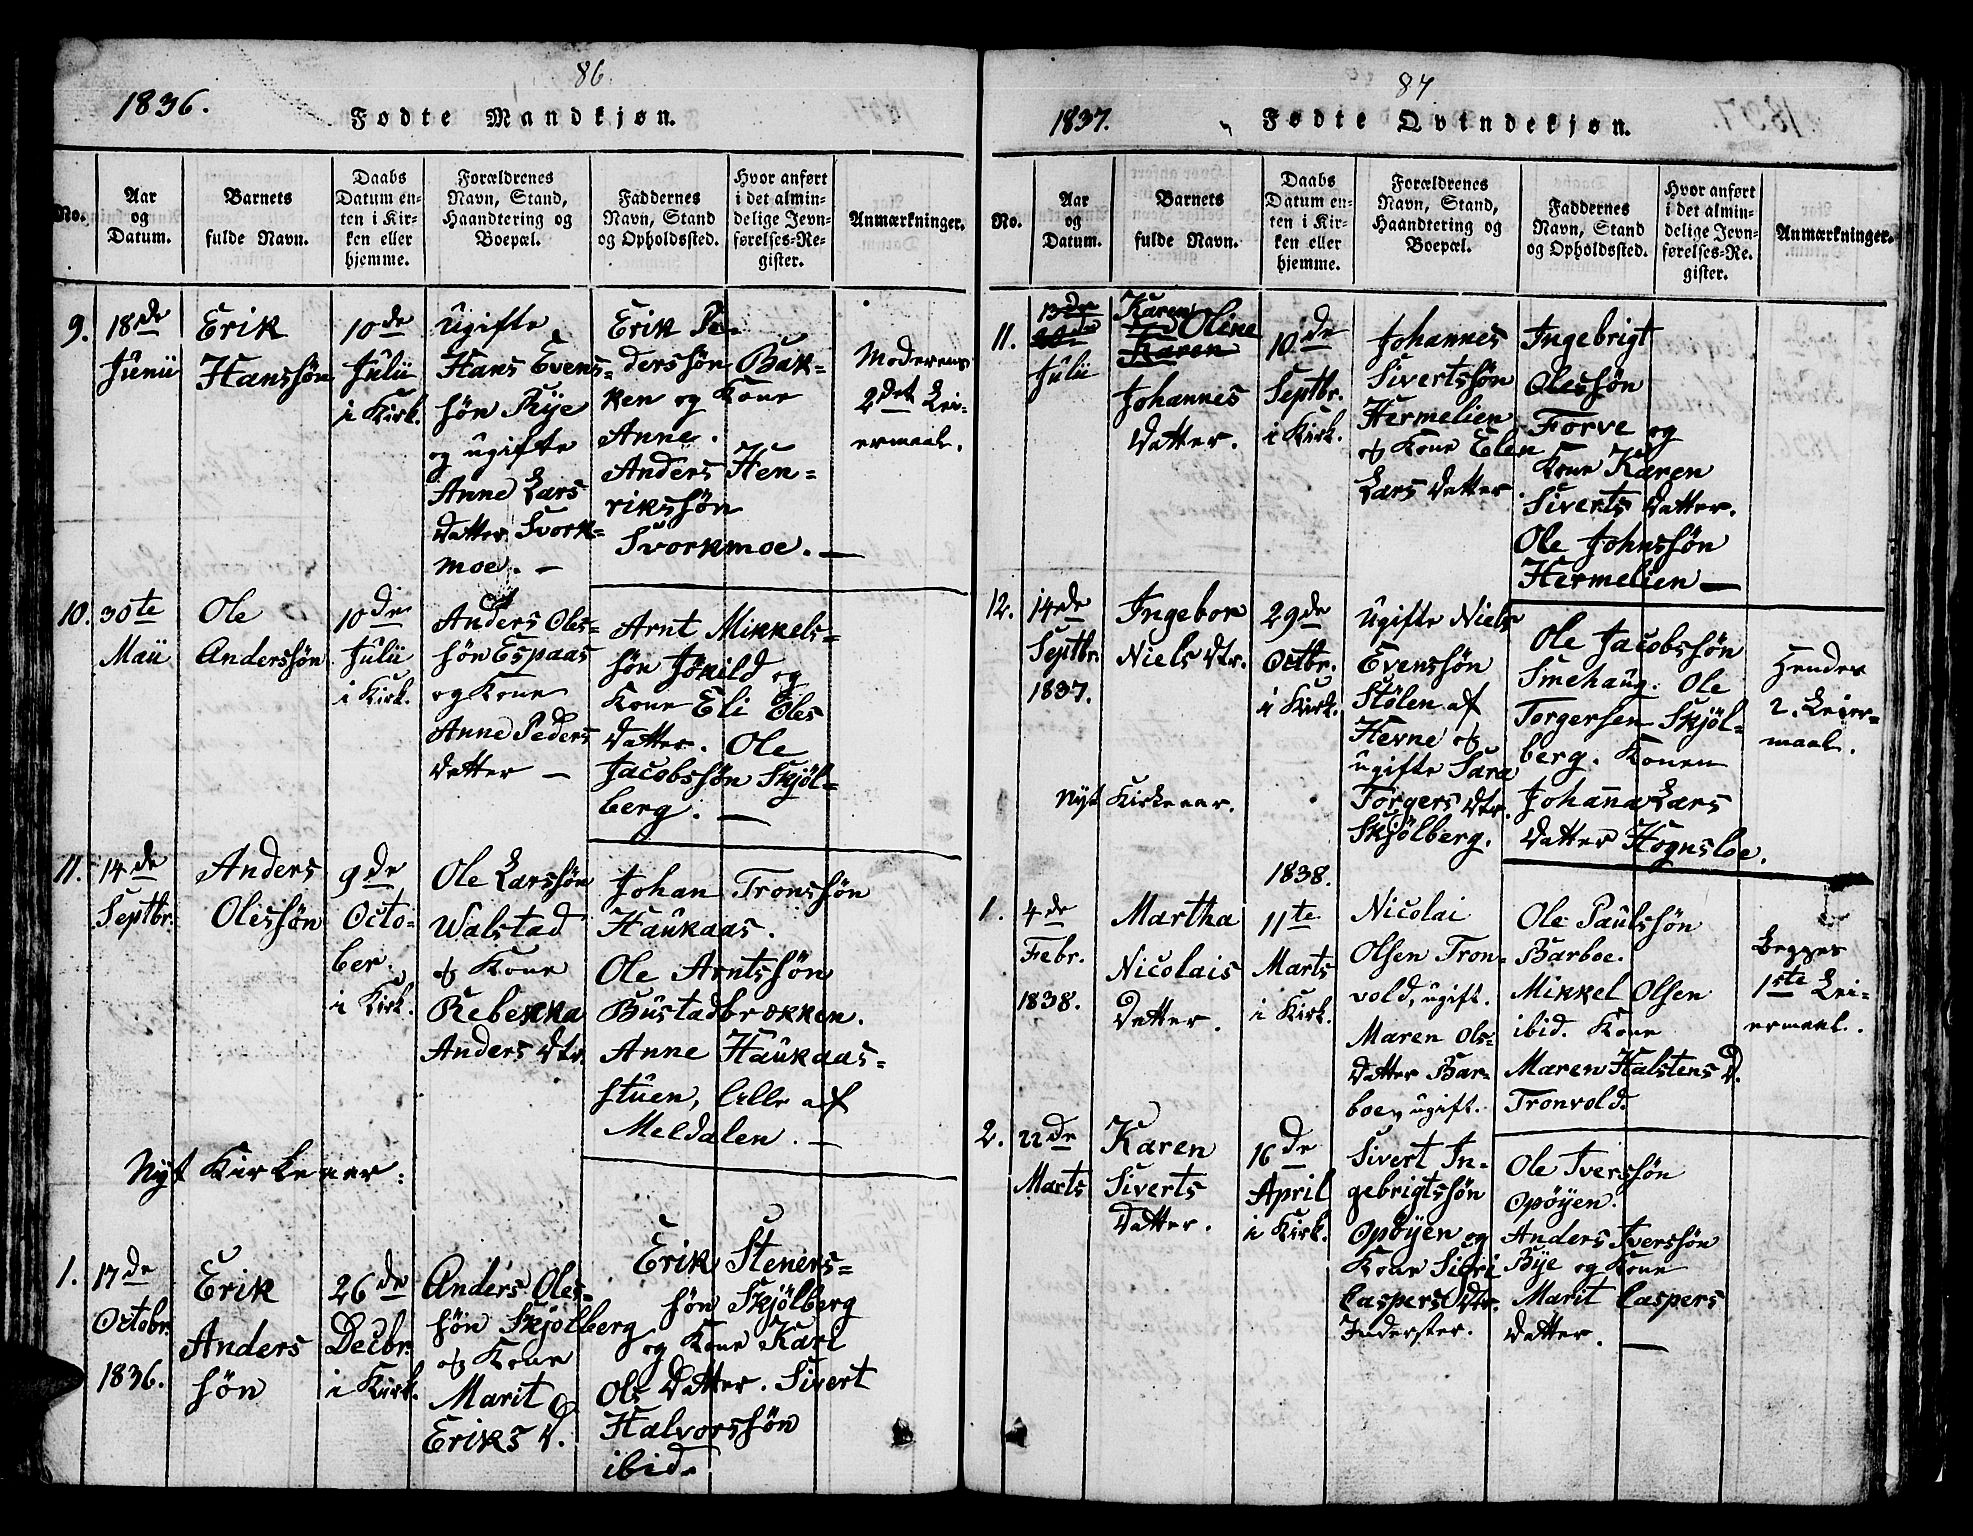 86.
1836.
Fødte Mandkjøn.
No.
Aar
og
Datum.
Barnets
fulde Navn.
Daabs
Datum en-
ten i Kir-
ken eller
hjemme.
Forældrenes
Navn, Stand,
Haandtering og
Boepæl.
Faddernes
Navn, Stand
og Opholdssted.
Hvor anført
i det almin-
delige Jevn-
førelses-Re-
gister.
Anmærkninger.
9.
18de
Junii
Erik
Hanssön
10de
Julii
i Kirk.
Ugifte
Hans Evens-
sön Rye
og ugifte
Anne Lars
datter Svork-
moe. —
Erik Pe-
derssön Bak-
ken og Kone
Anne.
Anders Hen-
rikssön
Svorkmoe. —
Moderens
2det Lei-
ermaal.
10.
30te
Maii
Ole
Anderssön
10de
Julii
i Kirk.
Anders Ols-
sön Espaas
og Kone
Anne Peders
datter —
Arnt Mikkels-
sön Jerild og
Kone Eli Oles
datter. Ole
Jacobssön Skjöl-
berg. —
11.
14de
Septbr.
Anders
Olessön
9de
Octo-
ber
i Kirk.
Ole Larssön
Walstad
og Kone
Rebekka
Anders dtr.
Johan Tronssön
Haukaas.
Ole Arntssön
Bustadbrækken.
Anne Haukaas-
stuen, alle af
Meldalen. —
Nyt Kirkeaar:
1.
17de
Octobr.
1836.
Erik
Anders
sön
26de
Decbr.
i Kirk.
Anders Oles-
sön Skjölberg
og Kone
Marit
Eriks d.
Erik Steners-
sön Skjölberg
og Kone Kari
Ols datter. Sivert
Halvorssön
ibid.
87
1837.
Fødte Qvindekjøn.
No.
Aar
og
Datum.
Barnets
fulde Navn.
Daabs
Datum en-
ten i Kir-
ken eller
hjemme.
Forældrenes
Navn, Stand,
Haandtering og
Boepæl.
Faddernes
Navn, Stand
og Opholdssted.
Hvor anført
i det almin-
delige Jevn-
førelses-Re-
gister.
Anmærkninger.
11.
13de
Julii
Karen
Oline
Karen
Johannes
datter.
10de
Septbr.
i Kirk.
Johannes
Sivertssön
Hermelien
og Kone Elen
Lars datter
Ingebrigt
Olessön
Forve og
Kone Karen
Siverts datter.
Ole Johnssön
Hermelien —
12.
14de
Septbr.
1837.
Ingebor
Niels dtr.
29de
Octbr.
i Kirk.
Ugifte Niels
Evenssön
Stölen af
Hevne og
ugifte Sara
Torgers dtr.
Skjölberg.
Ole Jacobssön
Smehaug. Ole
Torgersen Skjöl-
berg. Konen
Johanna Lars
datter Hognsloe.
Hendes
2. Leier-
maal.
Nyt Kirkeaar.
1838.
1.
4de
Febr.
1838.
Martha
Nicolais
datter.
11te
Marts
i Kirk.
Nicolai
Olsen Tron-
vold, ugift.
Maren Ols-
datter Bar-
boe, ugift.
Ole Paulssön
Barboe.
Mikkel Olsen
ibid. Kone
Maren Halstens d.
Tronvold.
Begges
1ste Lei-
ermaal.
2.
22de
Marts
Karen
Siverts
datter.
16de
April
i Kirk.
Sivert In-
gebrigtssön
Opöyen og
Kone Sigri
Caspers dtr.
Inderster.
Ole Iverssön
Opöyen.
Anders Iverssön
Bye og Kone
Marit Caspers
datter. —